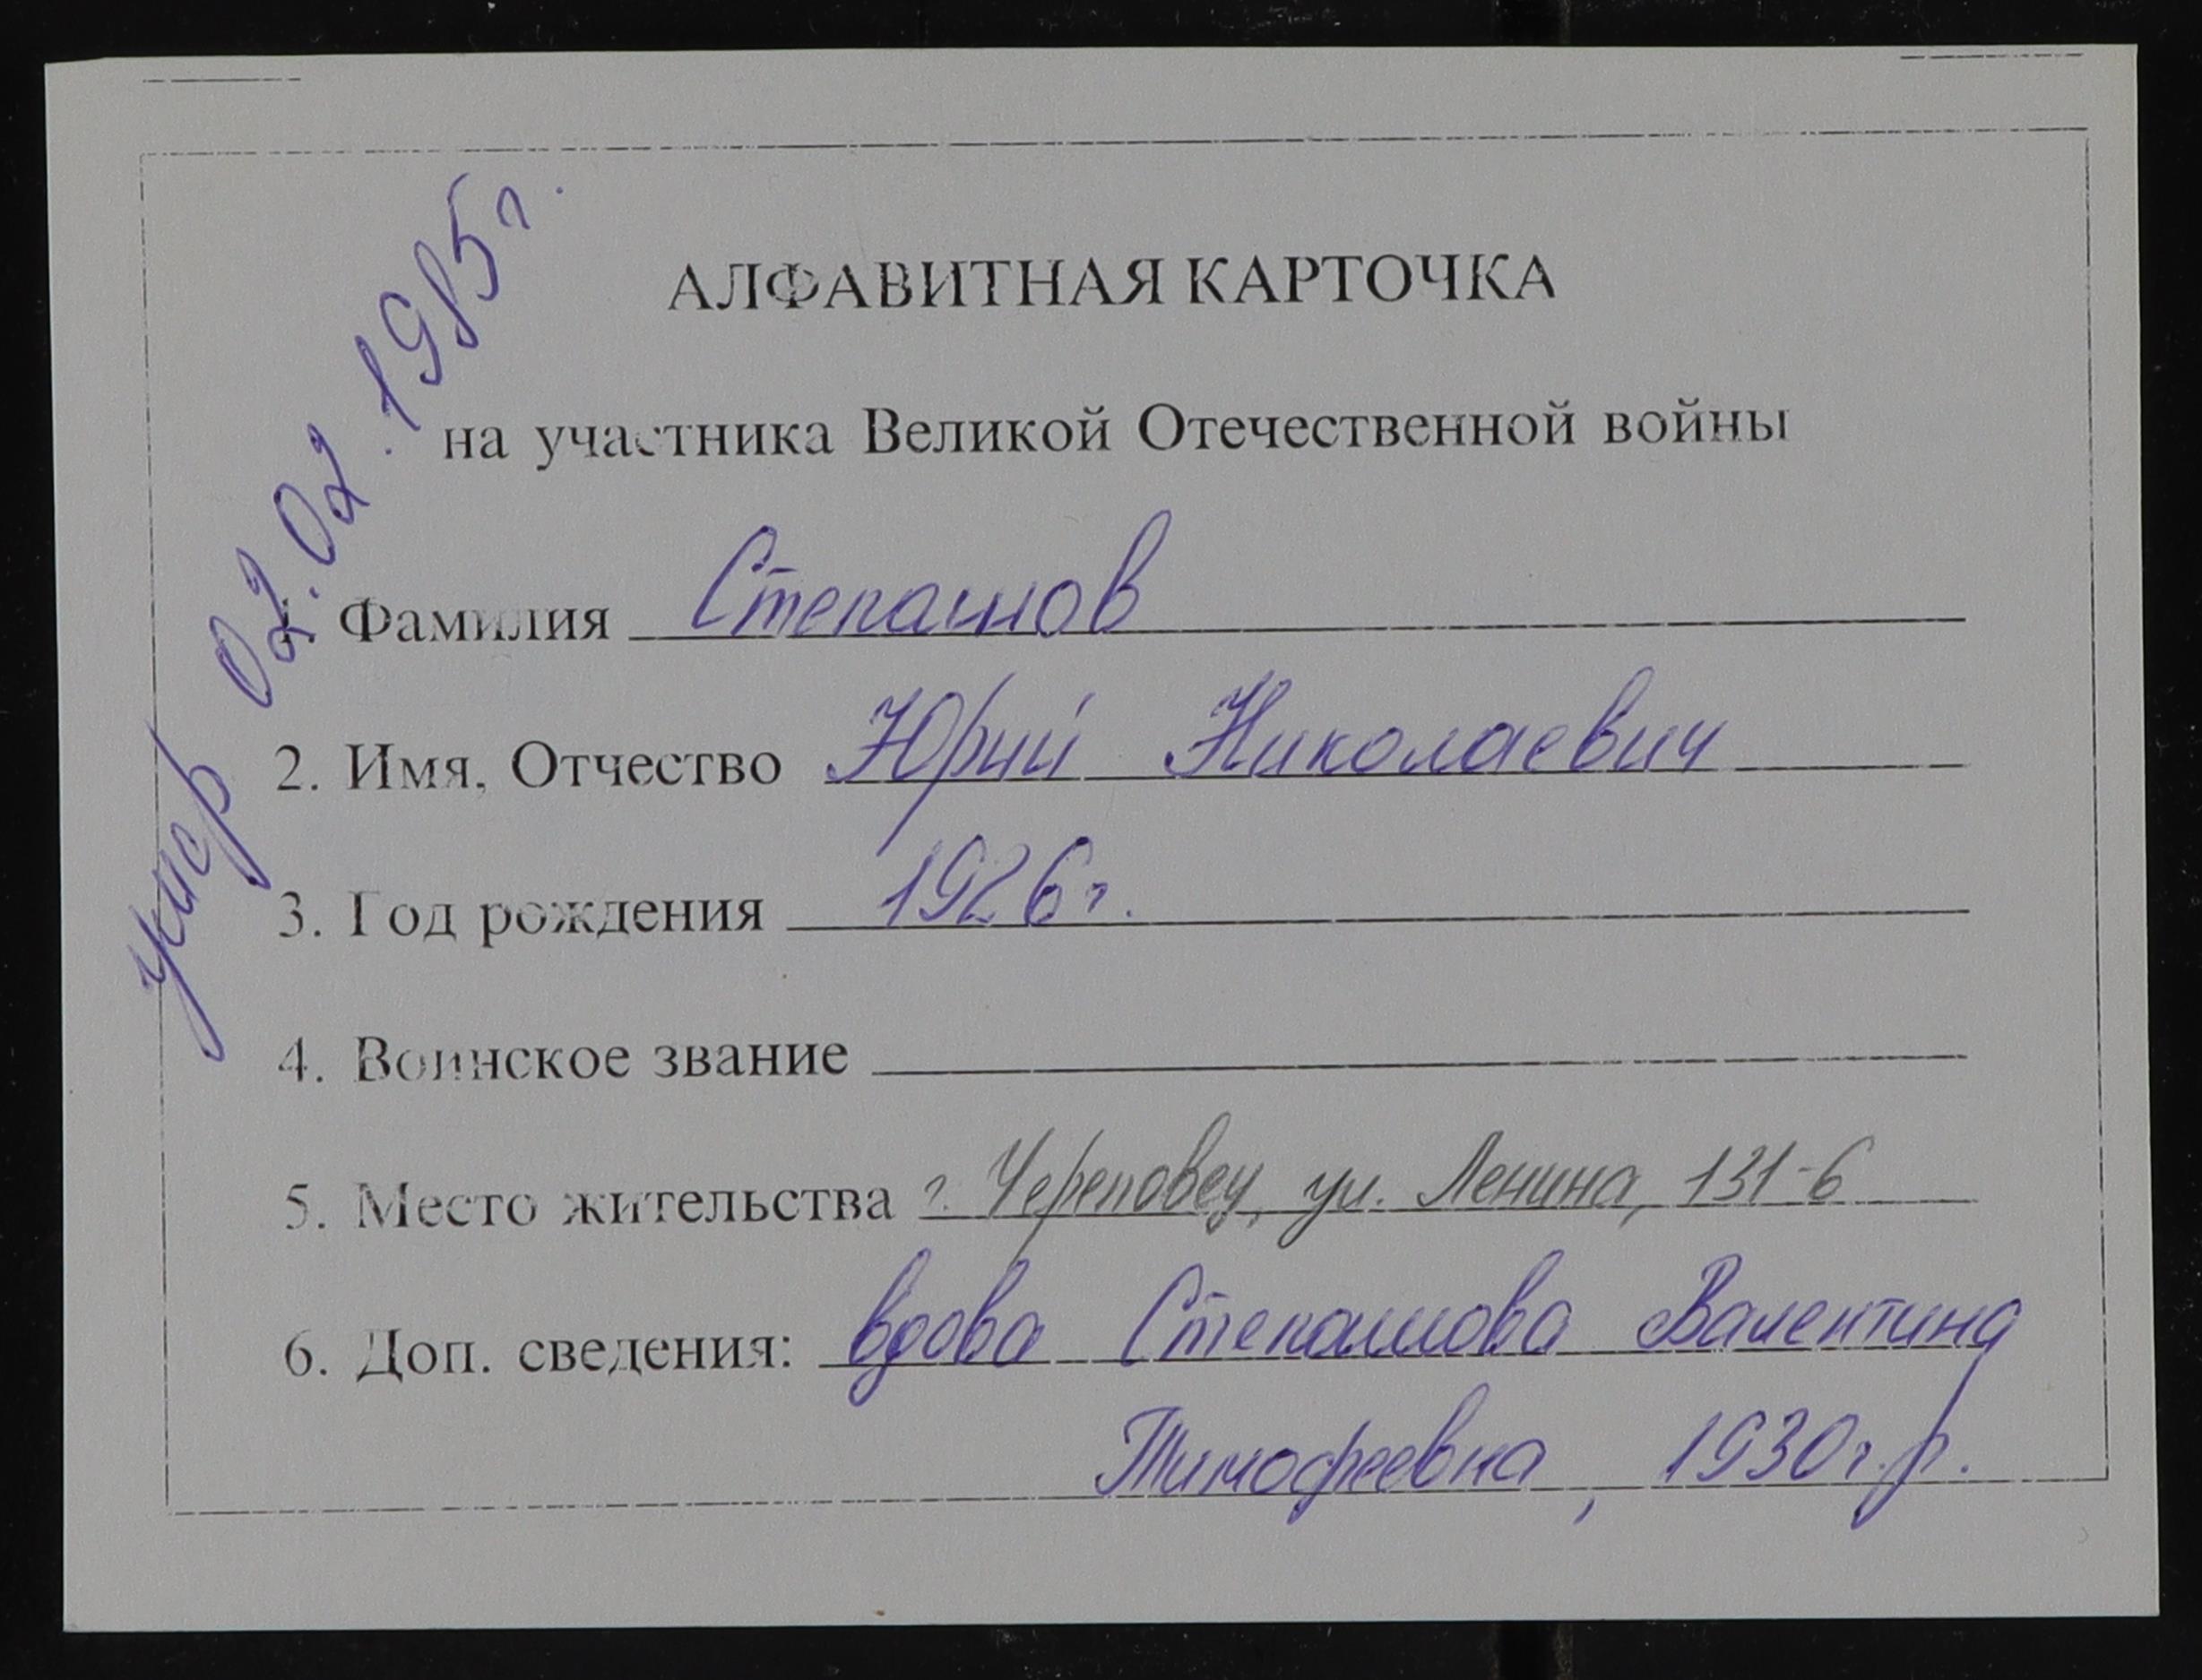 умер 02.02.1985г.
АЛФАВИТНАЯ КАРТОЧКА
на участника Великой Отечественной войны
1. Фамилия Степашов
2. Имя, Отчество Юрий Николаевич
3. Год рождения 1926г.
4. Воинское звание
5. Место жительства г. Череповец, ул. Ленина, 131-6
6. Доп. сведения: вдова Степашова Валентина
Тимофеевна, 1930г.р.